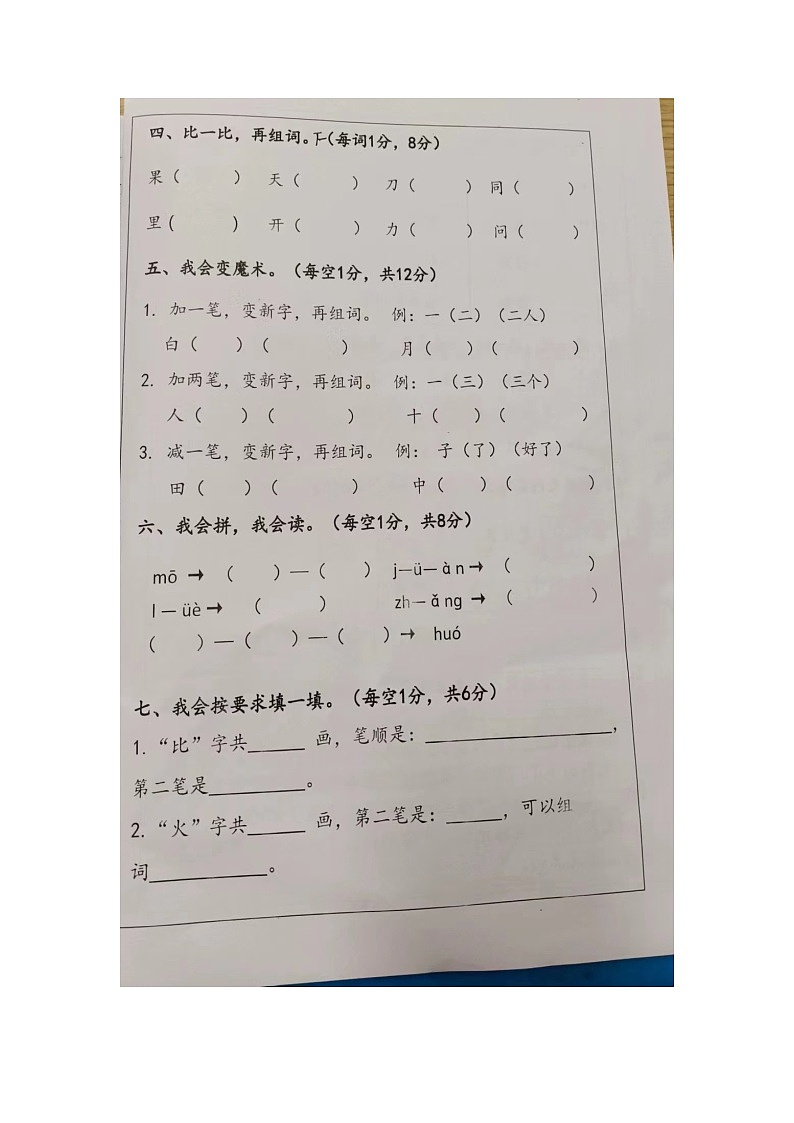 四、比一比，再组词。下（每词1分，8分）
果（ ） 天（ ） 刀（ ） 同（ ）
里（ ） 开（ ） 力（ ） 问（ ）
五、我会变魔术。（每空1分，共12分）
1. 加一笔，变新字，再组词。 例：一（二）（二人）
白（ ）（ ） 月（ ）（ ）
2. 加两笔，变新字，再组词。 例：一（三）（三个）
人（ ）（ ） 十（ ）（ ）
3. 减一笔，变新字，再组词。 例： 子（了）（好了）
田（ ）（ ） 中（ ）（ ）
六、我会拼，我会读。（每空1分，共8分）
mō → （ ）—（ ） j—ü—àn→ （ ）
l — üè → （ ） zh—ǎng → （ ）
（ ）—（ ）—（ ）→ huó
七、我会按要求填一填。（每空1分，共6分）
1.“比”字共_____ 画，笔顺是：________________，
第二笔是________。
2.“火”字共_____ 画，第二笔是：_____，可以组
词__________。